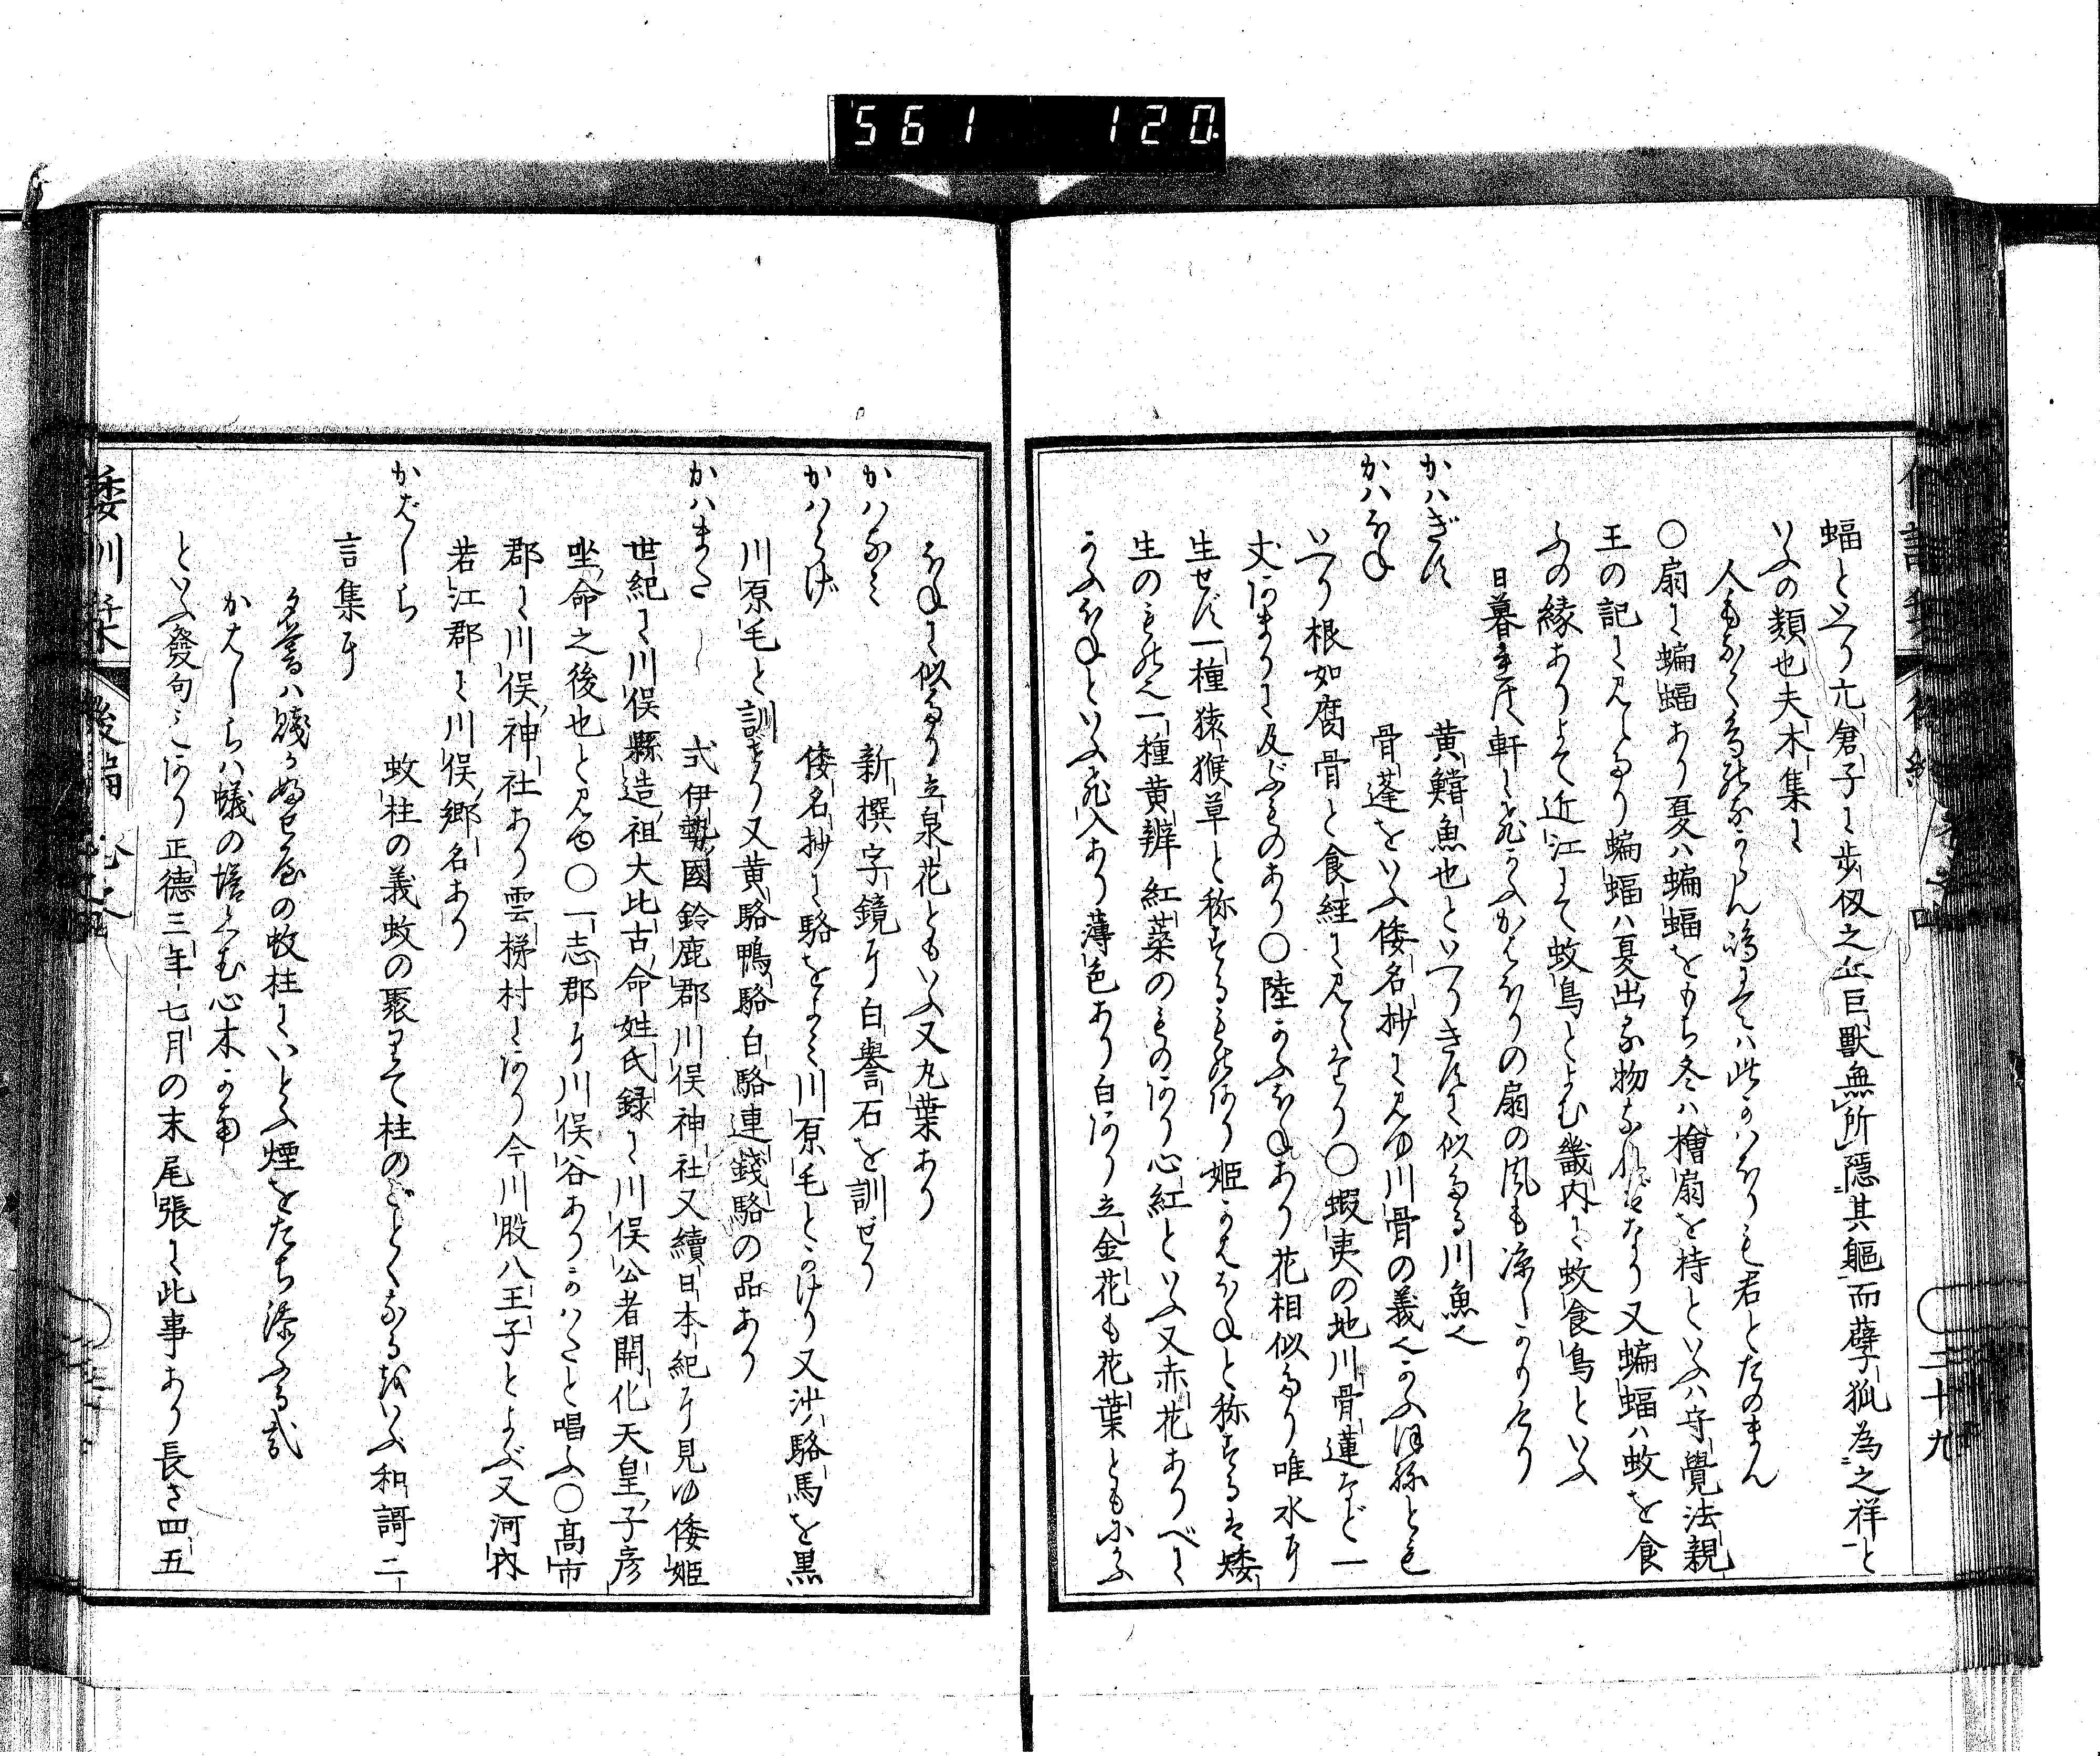 561 120
蝠といへり亢倉子に歩仭之丘巨獣無所隠其軀而孽狐為之祥と
いふの類也夫木集に
人もなく鳥もなからん嶋にては此かハほりも君とたのまん
〇扇に蝙蝠あり夏ハ蝙蝠をもち冬ハ檜扇を持といふハ守覺法親
王の記に見えたり蝙蝠ハ夏出る物なれバなり又蝙蝠ハ蚊を食
ふの縁ありよて近江にて蚊鳥とよむ畿内に蚊食鳥といふ
日暮れば軒に飛かふかはほりの扇の風も凉しかりけり
かハぎす 黄鱨魚也といへりきすに似たる川魚也
かハほね 骨蓬をいふ倭名抄に見ゆ川骨の義也かふほねとも
いへり根如腐骨と食経に見えたり〇蝦夷の地川骨蓮など一
丈あまりに及ぶものあり〇陸かふほねあり花相似たり唯水に
生せず一種猿猴草と称するものあり姫かはほねと称するは矮
生のもの也一種黄辨紅蘂のものあり心紅といふ又赤花ありべに
かふほねといふ飛入あり薄色あり白あり立金花も花葉ともにかふ
ほねに似たり立泉花ともいふ又丸葉あり
かハなみ 新撰字鏡に白礜石を訓せり
かハらげ 倭名抄に駱をよみ川原毛とかけり又沙駱馬を黒
川原毛と訓せり又黄駱鴨駱白駱連錢駱の品あり
かハまた 式伊勢國鈴鹿郡川俣神社又續日本紀に見ゆ倭姫
世紀に川俣縣造祖大比古命姓氏録に川俣公者開化天皇子彦
坐命之後也と見ゆ〇一志郡に川俣谷ありかハたと唱ふ〇高市
郡に川俣神社あり雲梯村にあり今川股八王子とよぶ又河内
若江郡に川俣郷名あり
かばしら 蚊柱の義蚊の聚りて柱のごとくなるをいふ和謌二
言集に
夕暮ハ賤かふせ屋の蚊柱にいとふ煙をたち添ふる哉
かはしらハ蟻の塔くむ心木かな
といふ發句もあり正徳三年七月の末尾張に此事あり長さ四五
倭訓栞 後編
二十九